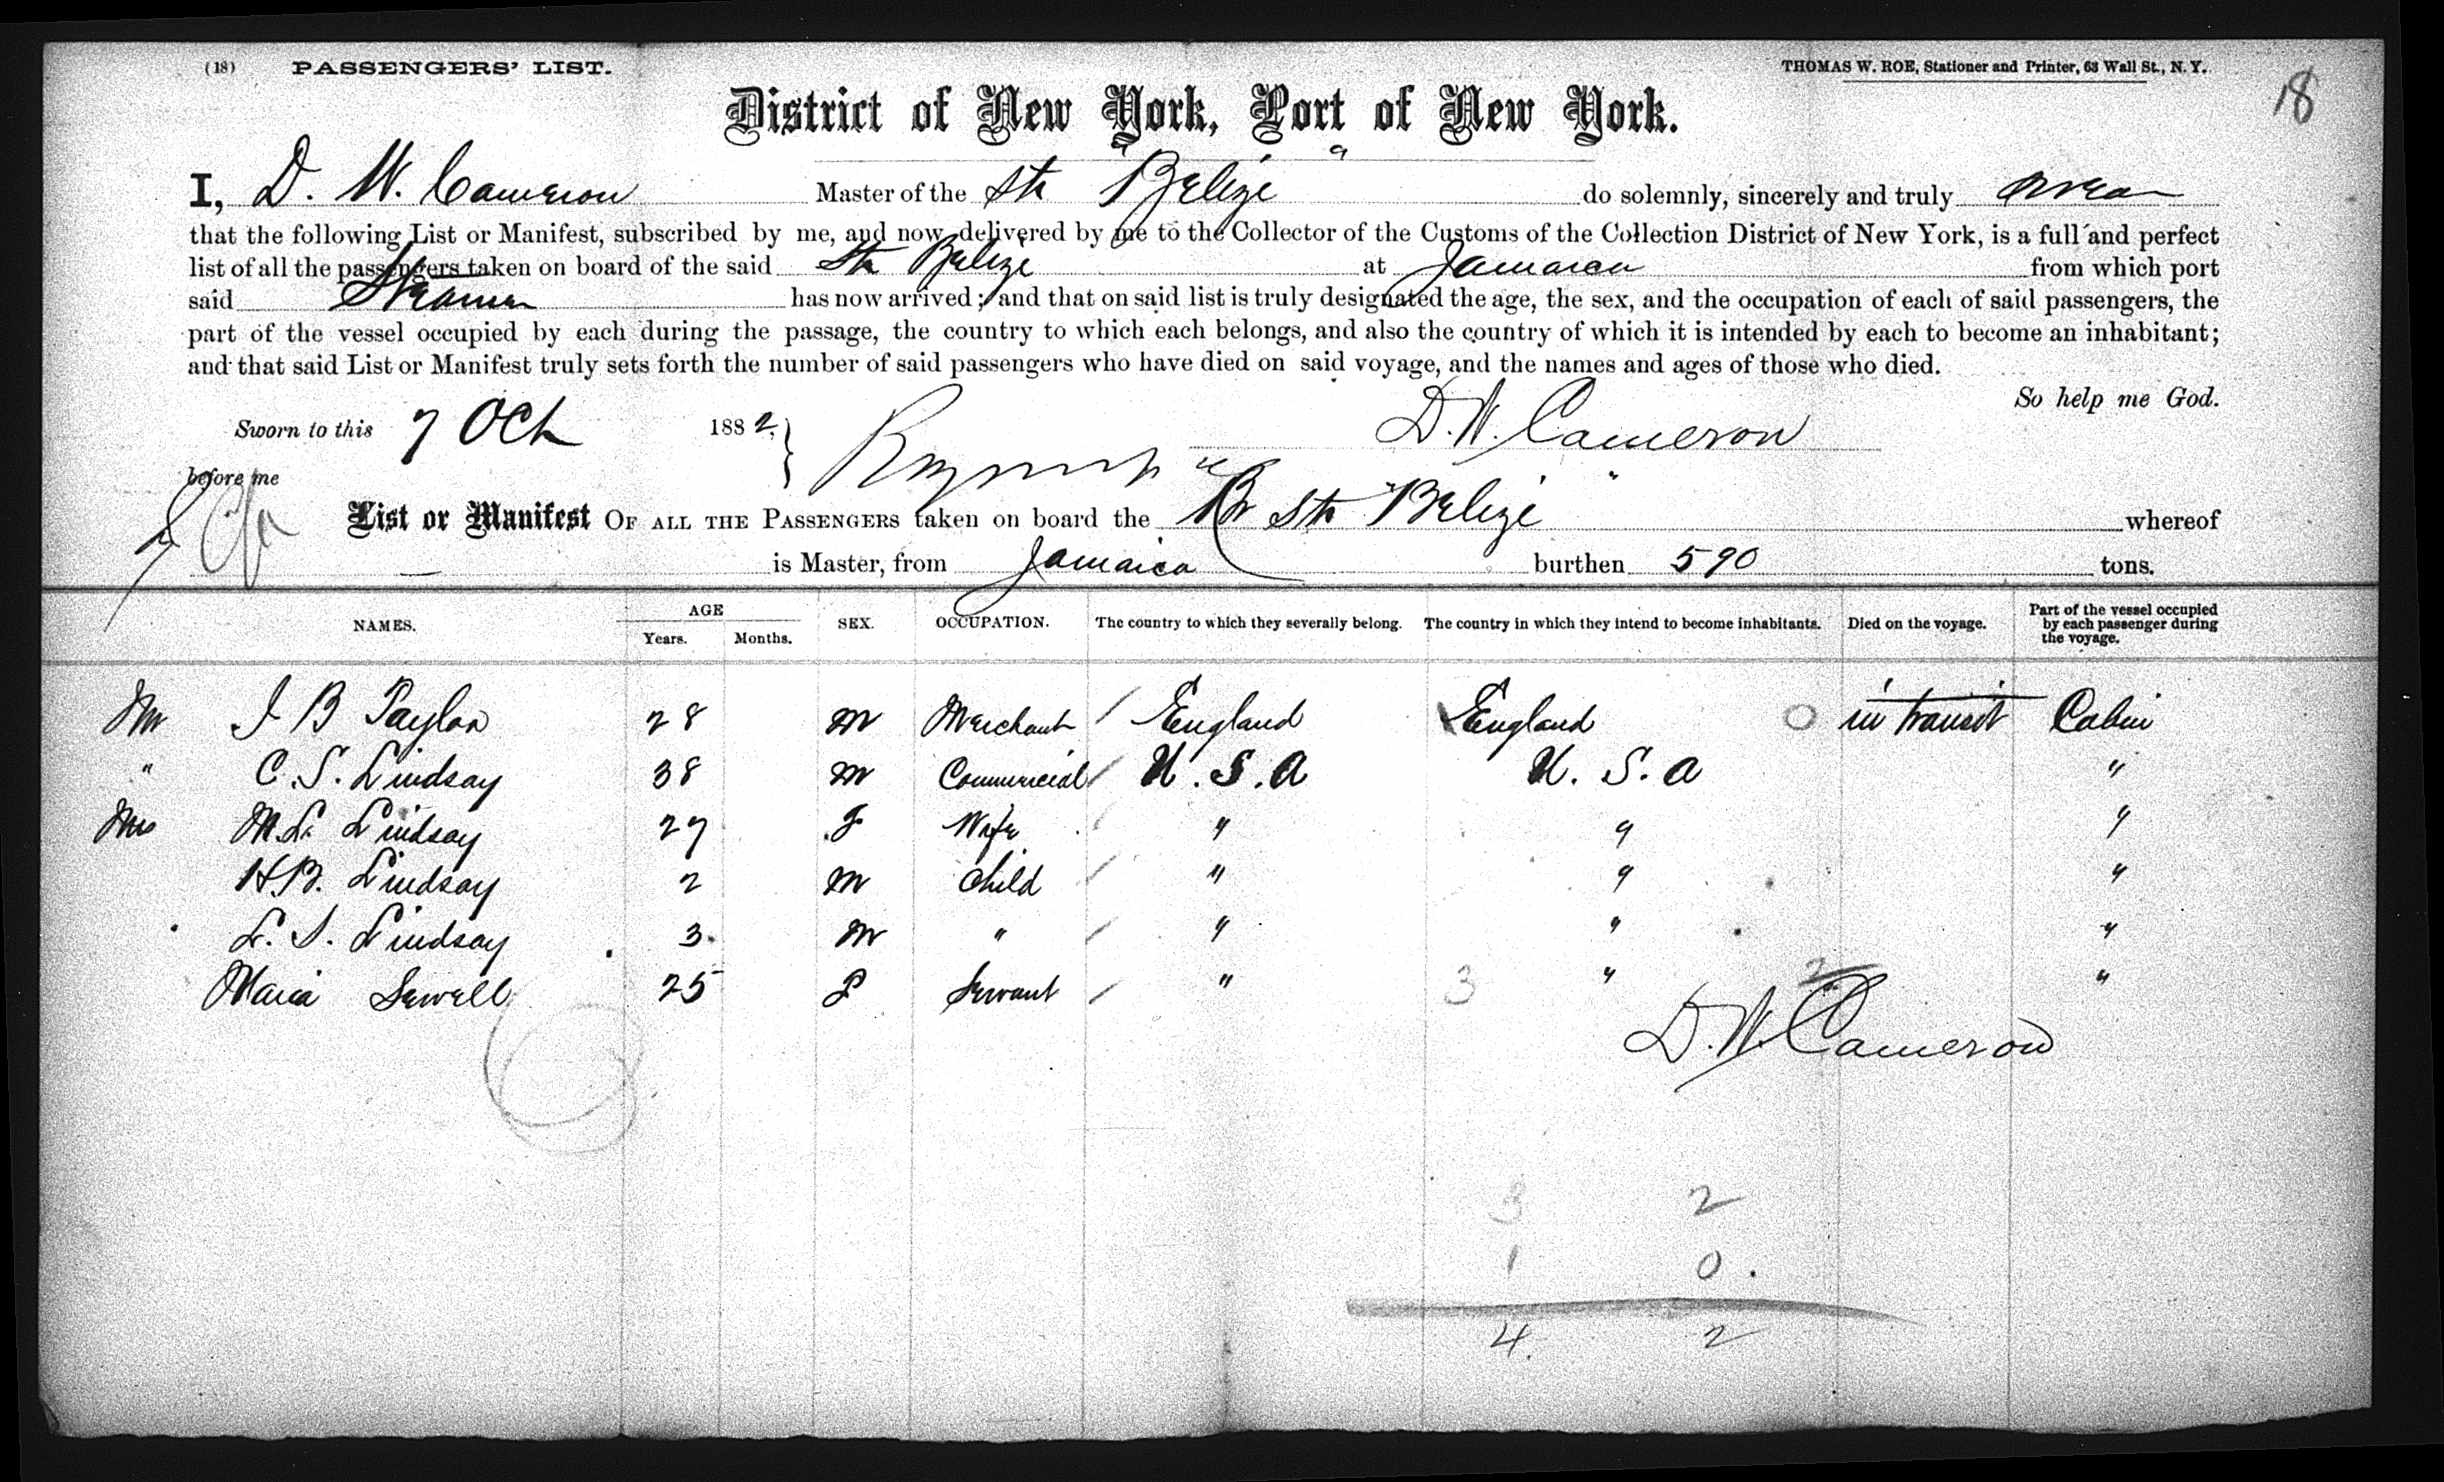 (18) PASSENGERS' LIST. THOMAS W. ROE, Stationer and Printer, 63 Wall St., N. Y.
18
District of New York, Port of New York.
I, D. W. Cameron Master of the Str "Belize" do solemnly, sincerely and truly swear
that the following List or Manifest, subscribed by me, and now delivered by me to the Collector of the Customs of the Collection District of New York, is a full and perfect
list of all the passengers taken on board of the said Str Belize at Jamaica from which port
said Steamer has now arrived; and that on said list is truly designated the age, the sex, and the occupation of each of said passengers, the
part of the vessel occupied by each during the passage, the country to which each belongs, and also the country of which it is intended by each to become an inhabitant;
and that said List or Manifest truly sets forth the number of said passengers who have died on said voyage, and the names and ages of those who died.
So help me God.
Sworn to this 7 Oct 1882, D. W. Cameron
before me
List or Manifest OF ALL THE PASSENGERS taken on board the Br Str "Belize" whereof
is Master, from Jamaica burthen 590 tons.
NAMES. AGE Years. Months. SEX. OCCUPATION. The country to which they severally belong. The country in which they intend to become inhabitants. Died on the voyage. Part of the vessel occupied by each passenger during the voyage.
Mr J B Taylor 28 m Merchant / England England O in transit Cabin
" C. S. Lindsay 38 m Commercial / U. S. A U. S. A "
Mrs M. L. Lindsay 27 f Wife / " " "
H. B. Lindsay 2 m child / " " "
L. S. Lindsay 3 m " / " " "
Maria Sewell 25 f Servant / " 3 " 2 "
D. W. Cameron
3 2
1 0.
4. 2